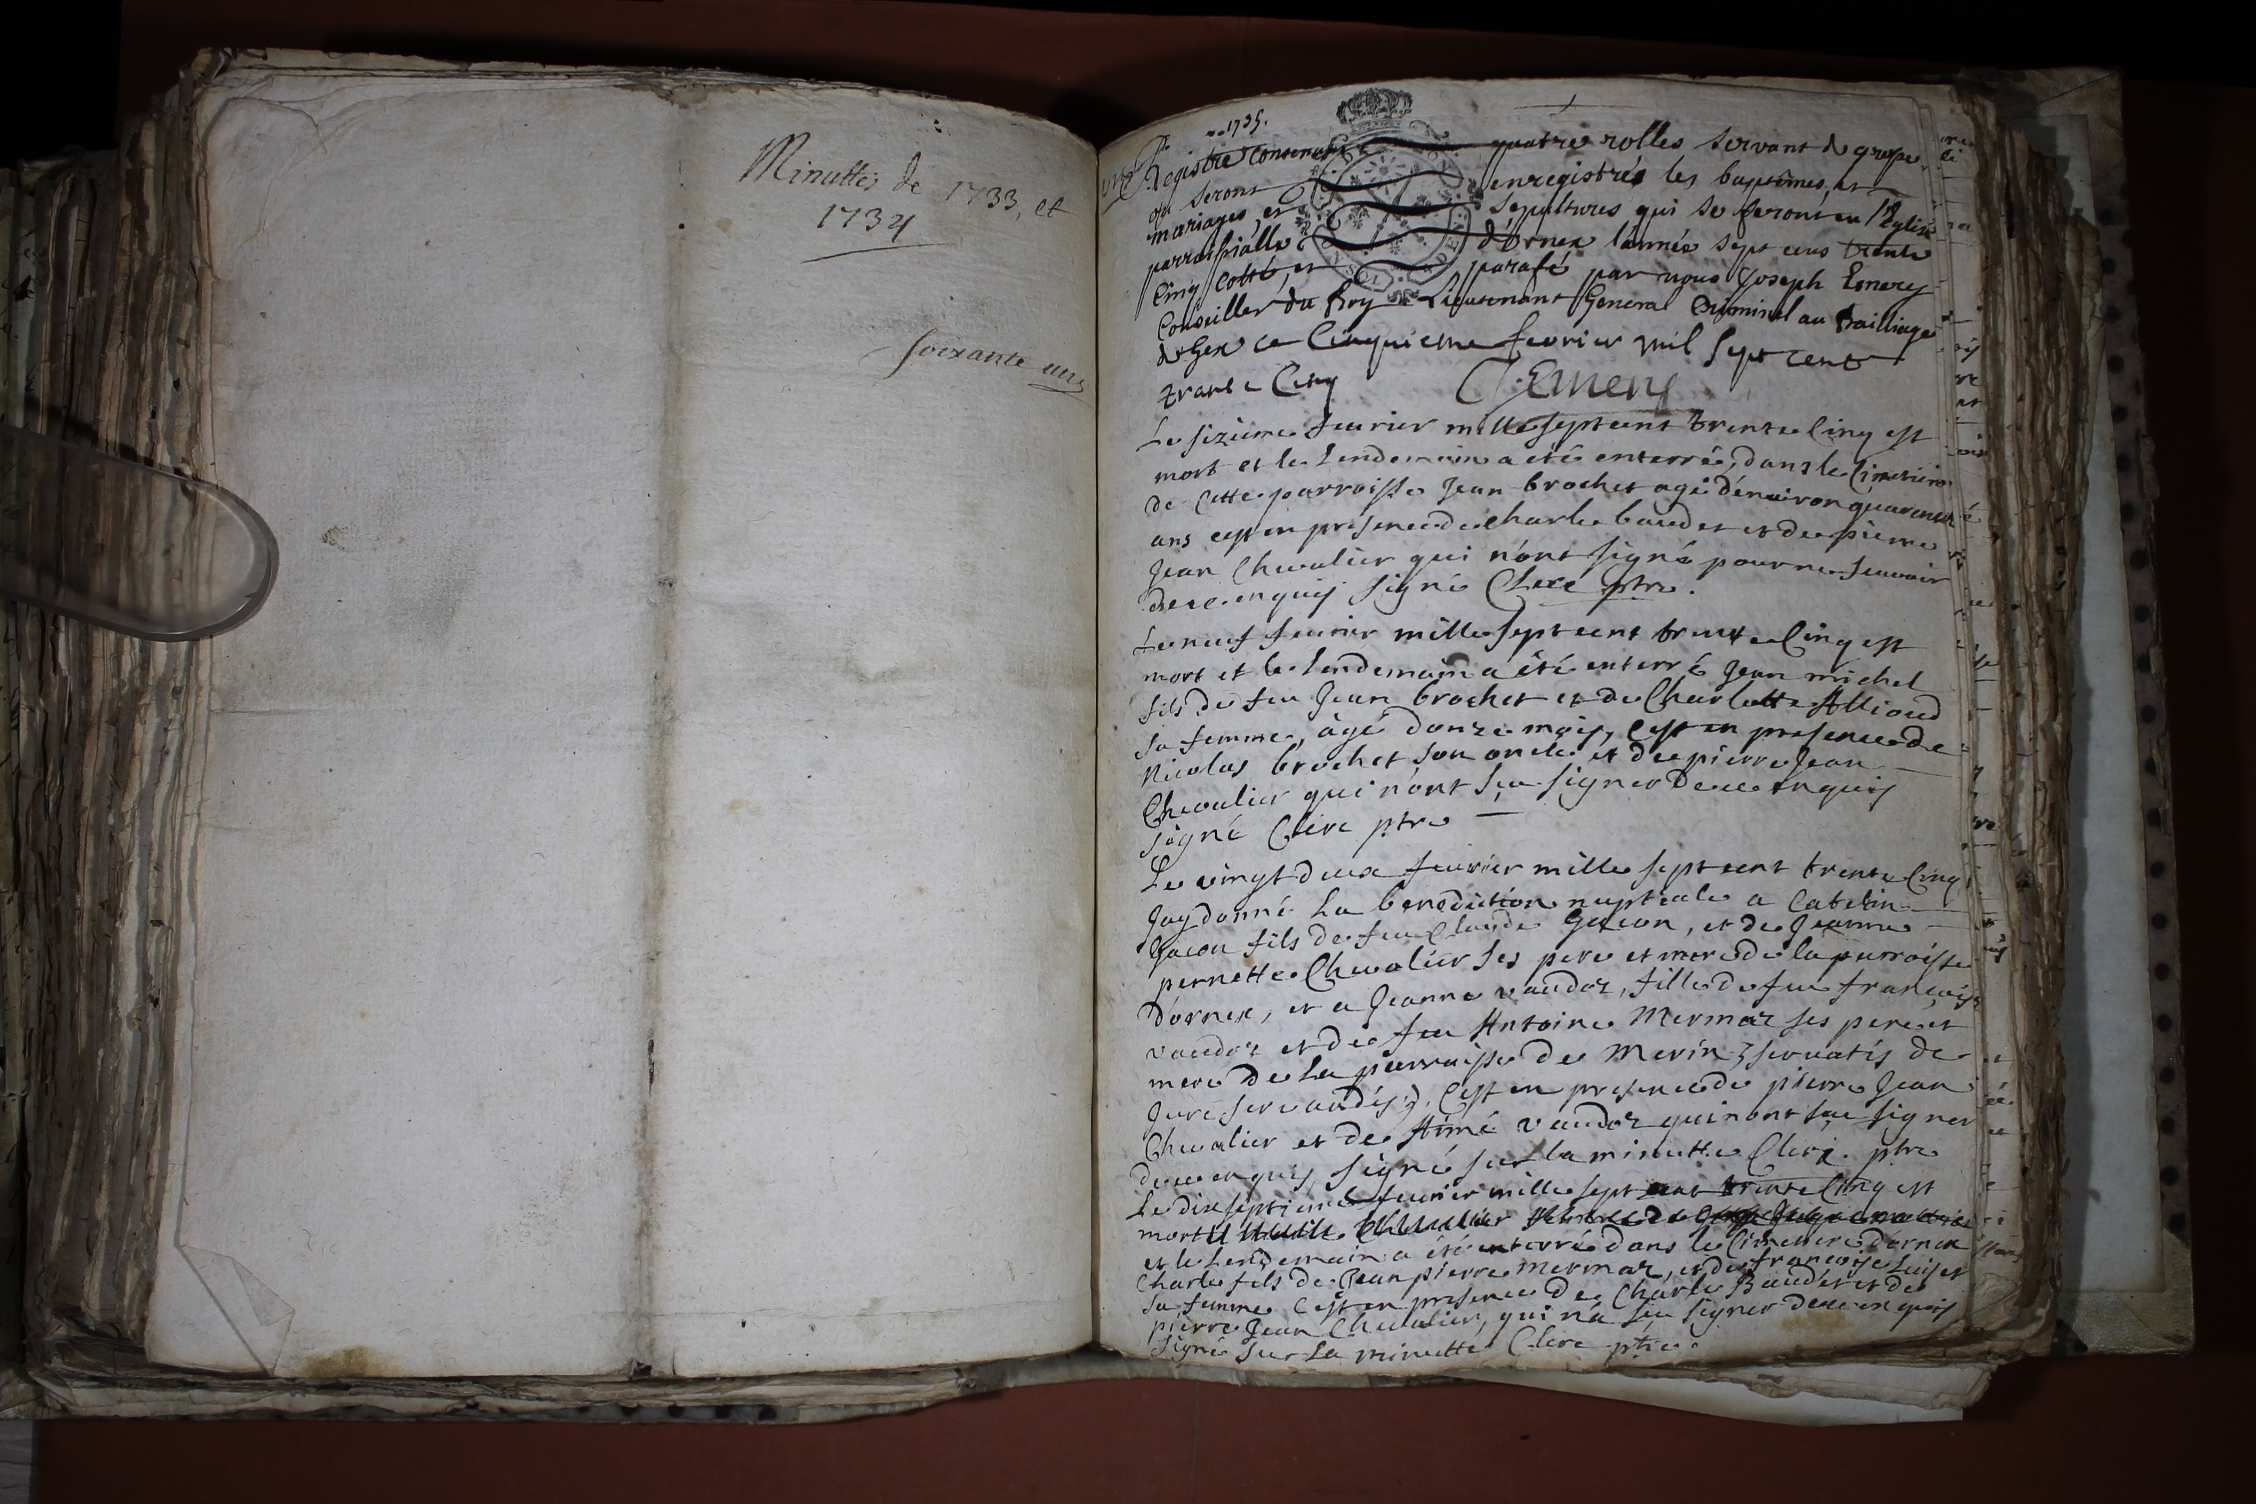 Minuttes de 1733, et
1734
soixante un
1735.
une
Registre contenant quatre rolles servant de greffe
ou seront enregistrés les baptêmes, et
mariages, et sepultures qui se feront en l'Eglise
parroissialle d'Ornex l'année sept cens trente
Cinq Cotté, et parafé par nous Joseph Emery
Conseiller du Roy Lieutenant General Criminel au Bailliage
de Gex ce Cinquieme fevrier mil sept cent
trante Cinq Emery
Le sizieme feurier mille sept cent trente Cinq est
mort et le Lendemain a été enterré, dans le Cimetiere
de Cette parroisse Jean brochet agé d'enuiron quarente
ans cest en presence de charle baudet et de pierre
Jean Chevalier qui n'ont signé pour ne sçauoir
de ce enquis signé Clerc ptre.
Le neuf feurier mille sept cent trente Cinq est
mort et le lendemain a été enterré Jean michel
fils de feu Jean brochet et de Charlotte Alliod
sa femme, âgé d'onze mois, C'est en presence de
Nicolas brochet son oncle et de pierre Jean
Chevalier qui n'ont sçu signer de ce enquis
signé Clerc ptre
Le vingt deux feurier mille sept cent trente Cinq
Jay donné La benediction nuptiale a Catelin
Gacon fils de feu Claude Gacon, et de Jeanne
pernette Chevalier ses pere et mere de la parroisse
d'ornex, et a Jeanne vaudoz, fille de feu françois
vaudoz et de feu Antoine Mermaz ses pere et
mere de La parroisse de Merin, servatis de
Jure servandis, C'est en presence de pierre Jean
Chevalier et de Aimé vaudoz qui n'ont sçu signer
de ce enquis, signé sur la minutte Clerc ptre
Le dixseptieme feurier mille sept cent trente Cinq est
mort
et le Lendemain a été enterré dans le Cimetiere d'ornex
Charle fils de Jean pierre mermaz, et de françoise
sa femme C'est en presence de Charle Baudet et de
pierre Jean Chevalier, qui n'a sçu signer de ce enquis
signé sur La minutte Clerc ptre.